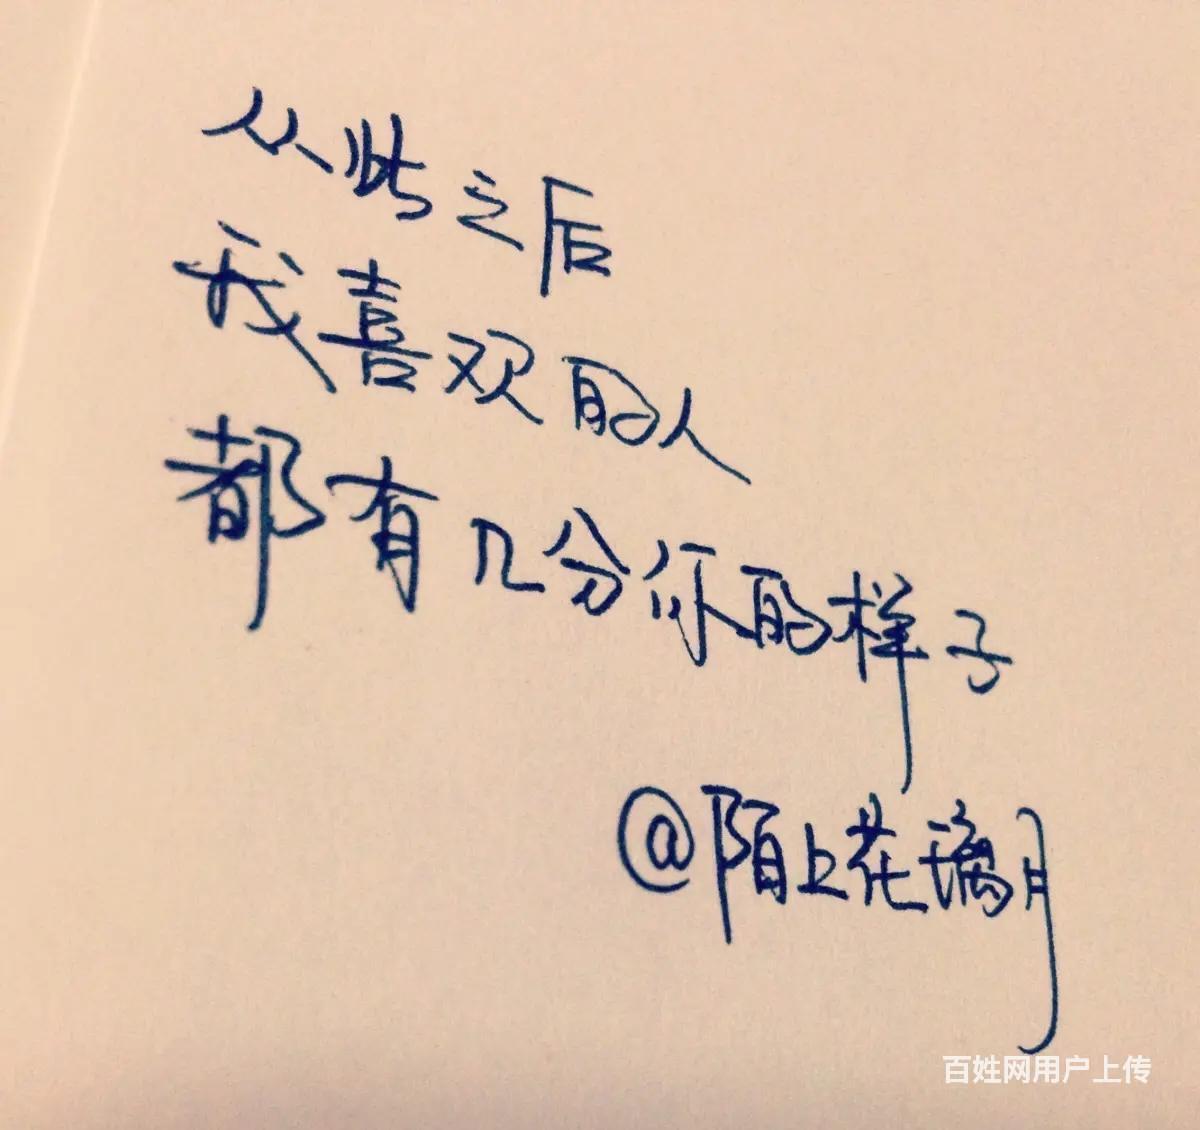 从此之后
我喜欢的人
都有几分你的样子
@陌上花璃月
百姓网用户上传